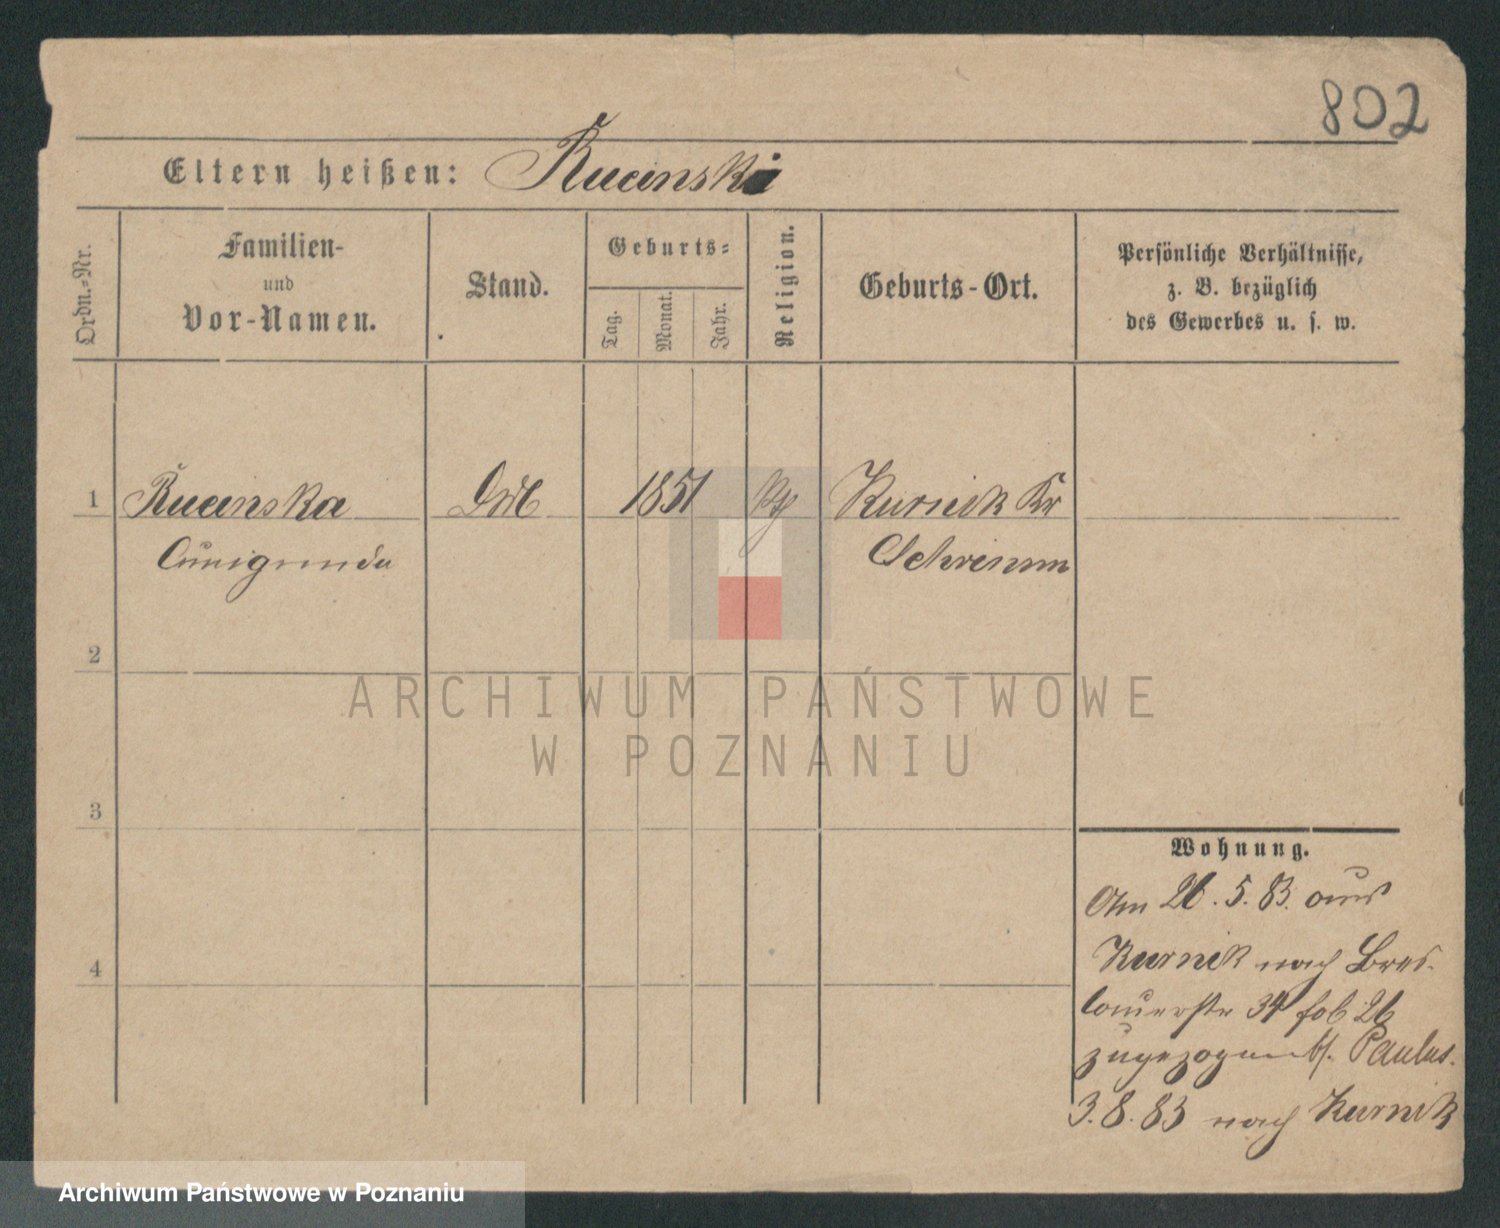 802
Eltern heißen: Rucinski
Ordn.-Nr.
Familien-
und
Vor-Namen.
Stand.
Geburts-
Tag.
Monat.
Jahr.
Religion.
Geburts-Ort.
Persönliche Verhältnisse,
z. B. bezüglich
des Gewerbes u. s. w.
1 Rucinska 1851 kth Kurnick Kr
Cunigunda Schrimm
2
ARCHIWUM PAŃSTWOWE
W POZNANIU
3
Wohnung.
Am 26. 5. 83. aus
Kurnik nach Bres-
4
lauerstr 34 fol 26
zugezogen bf. Paulus.
3. 8. 83 nach Kurnik
Archiwum Państwowe w Poznaniu